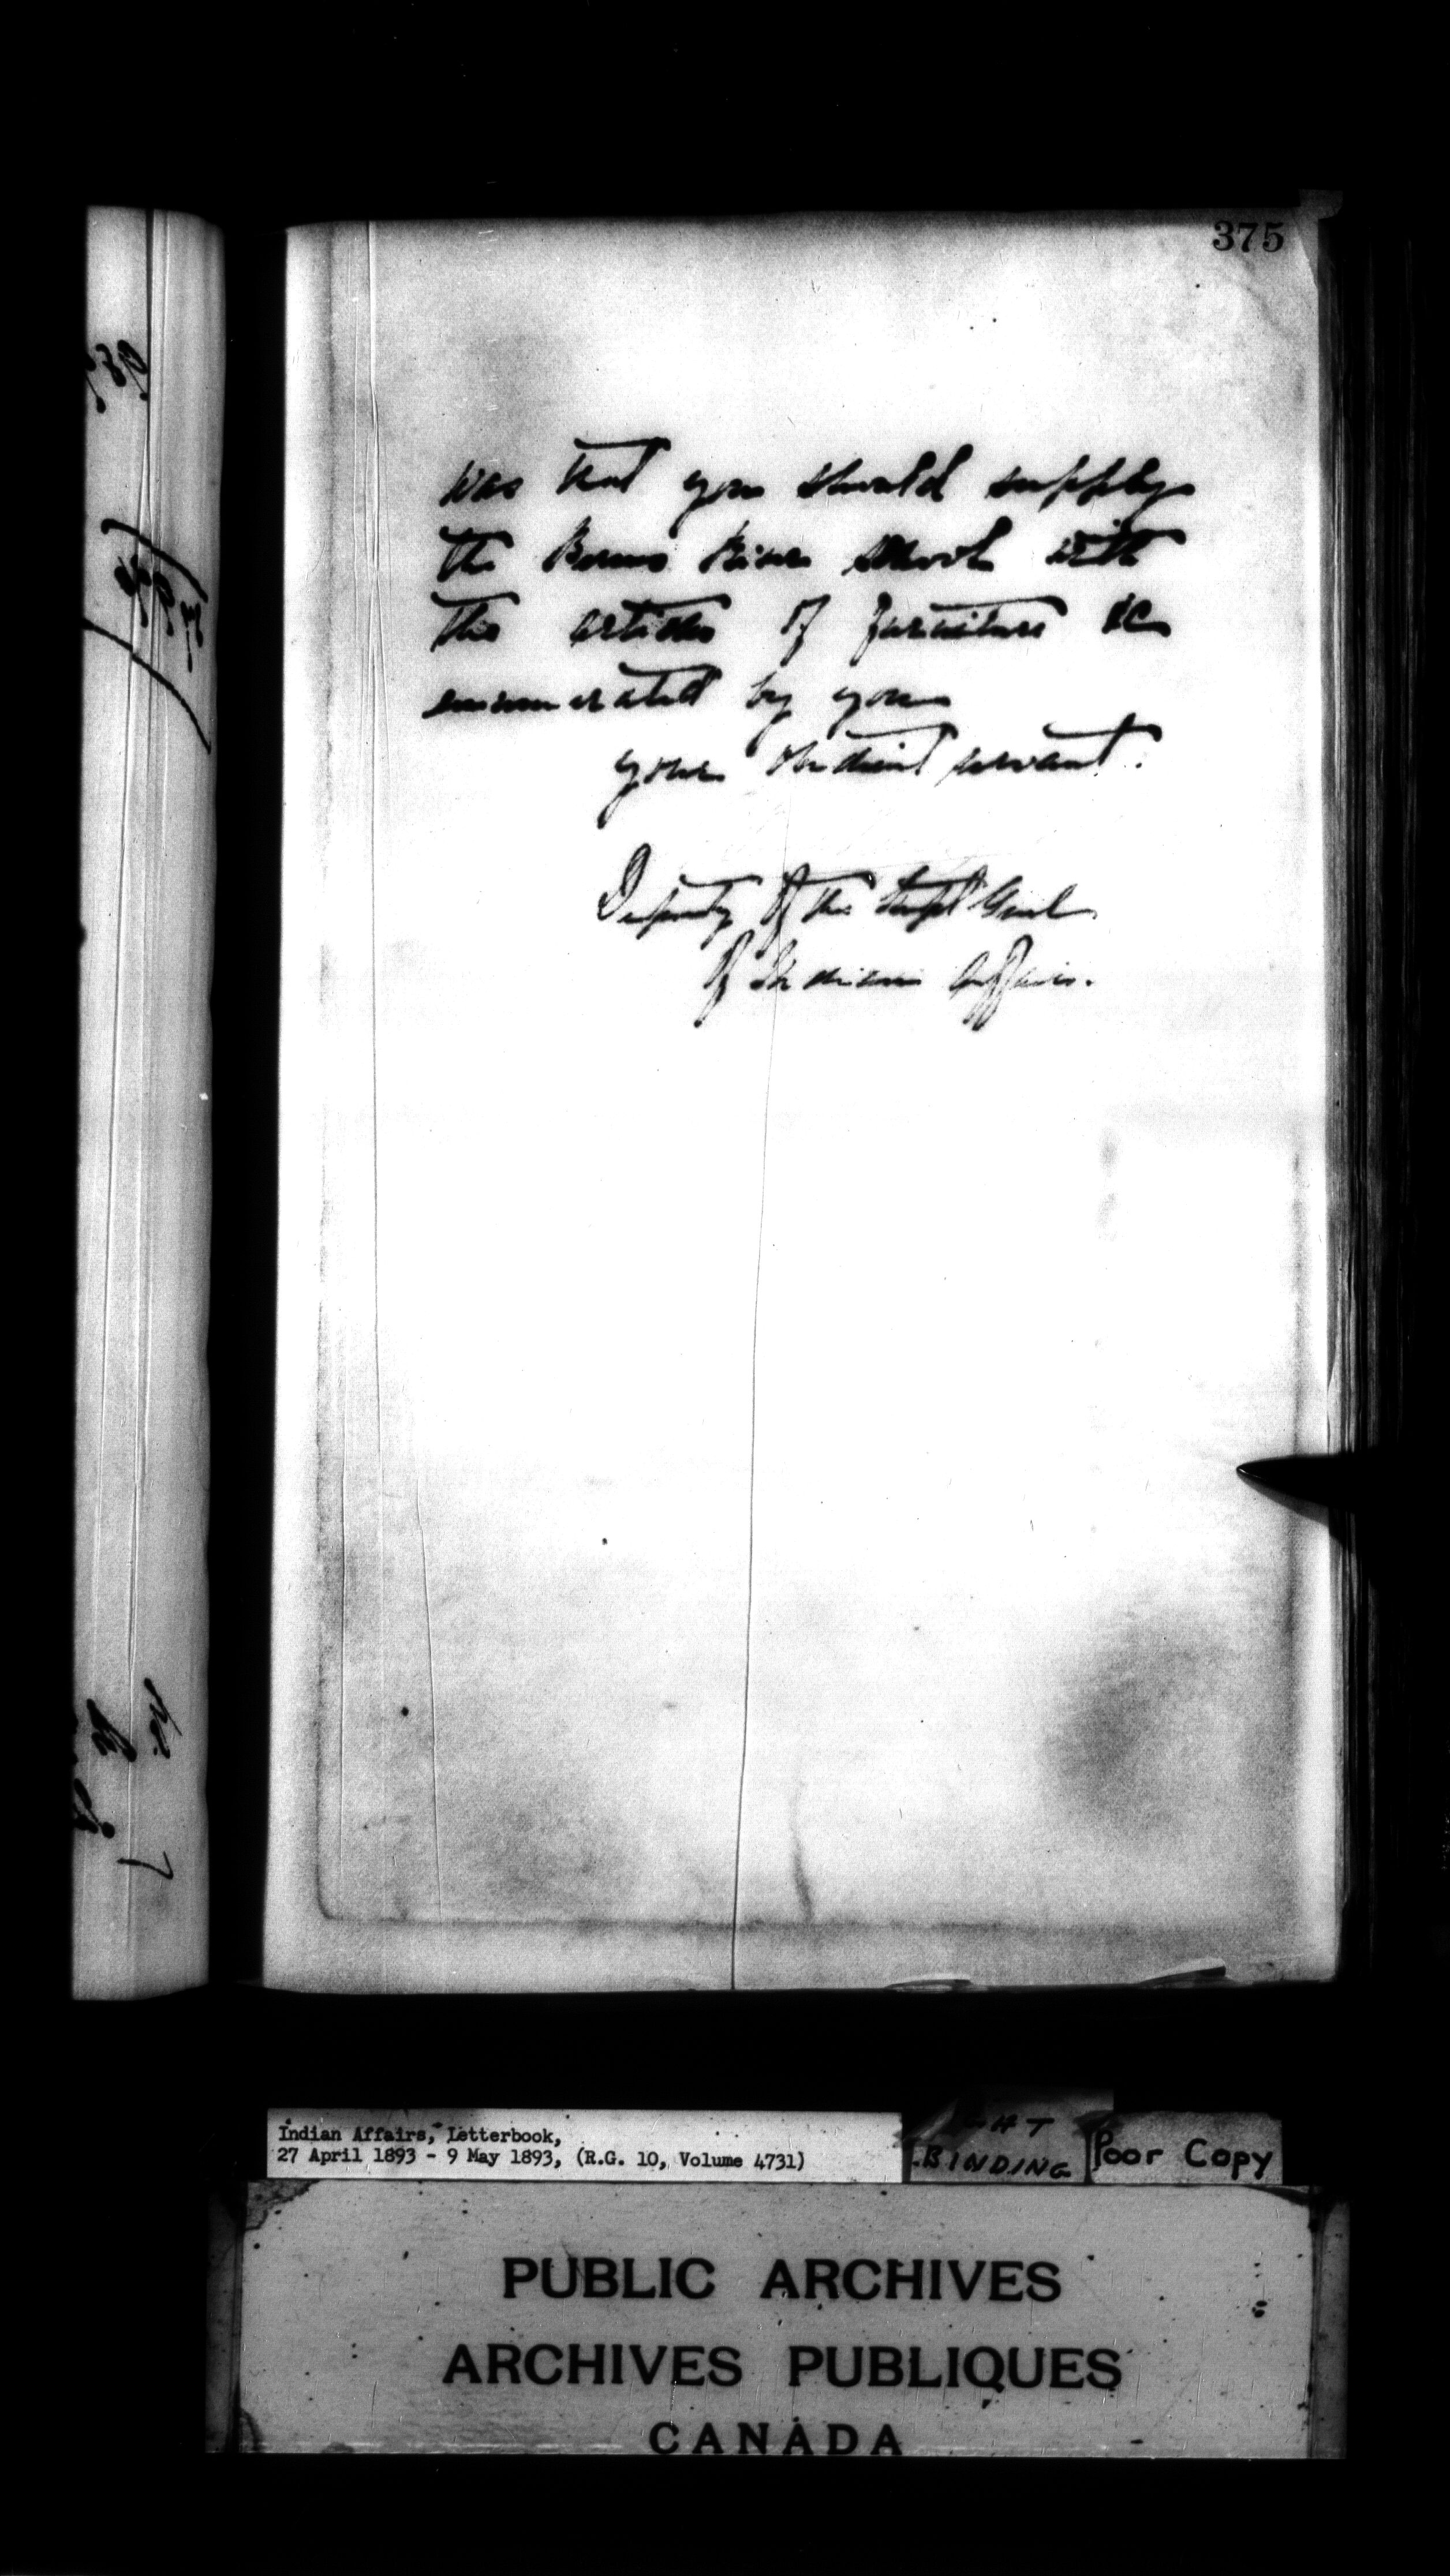 375
was that you should supply
the Berens River School with
the articles of furniture &c
enumerated by you
your obedient servant.
Deputy of the Supt Genl
of Indian Affairs.
Indian Affairs, Letterbook,
27 April 1893 - 9 May 1893, (R.G. 10, Volume 4731)
BINDING
Poor Copy
PUBLIC ARCHIVES
ARCHIVES PUBLIQUES
CANADA